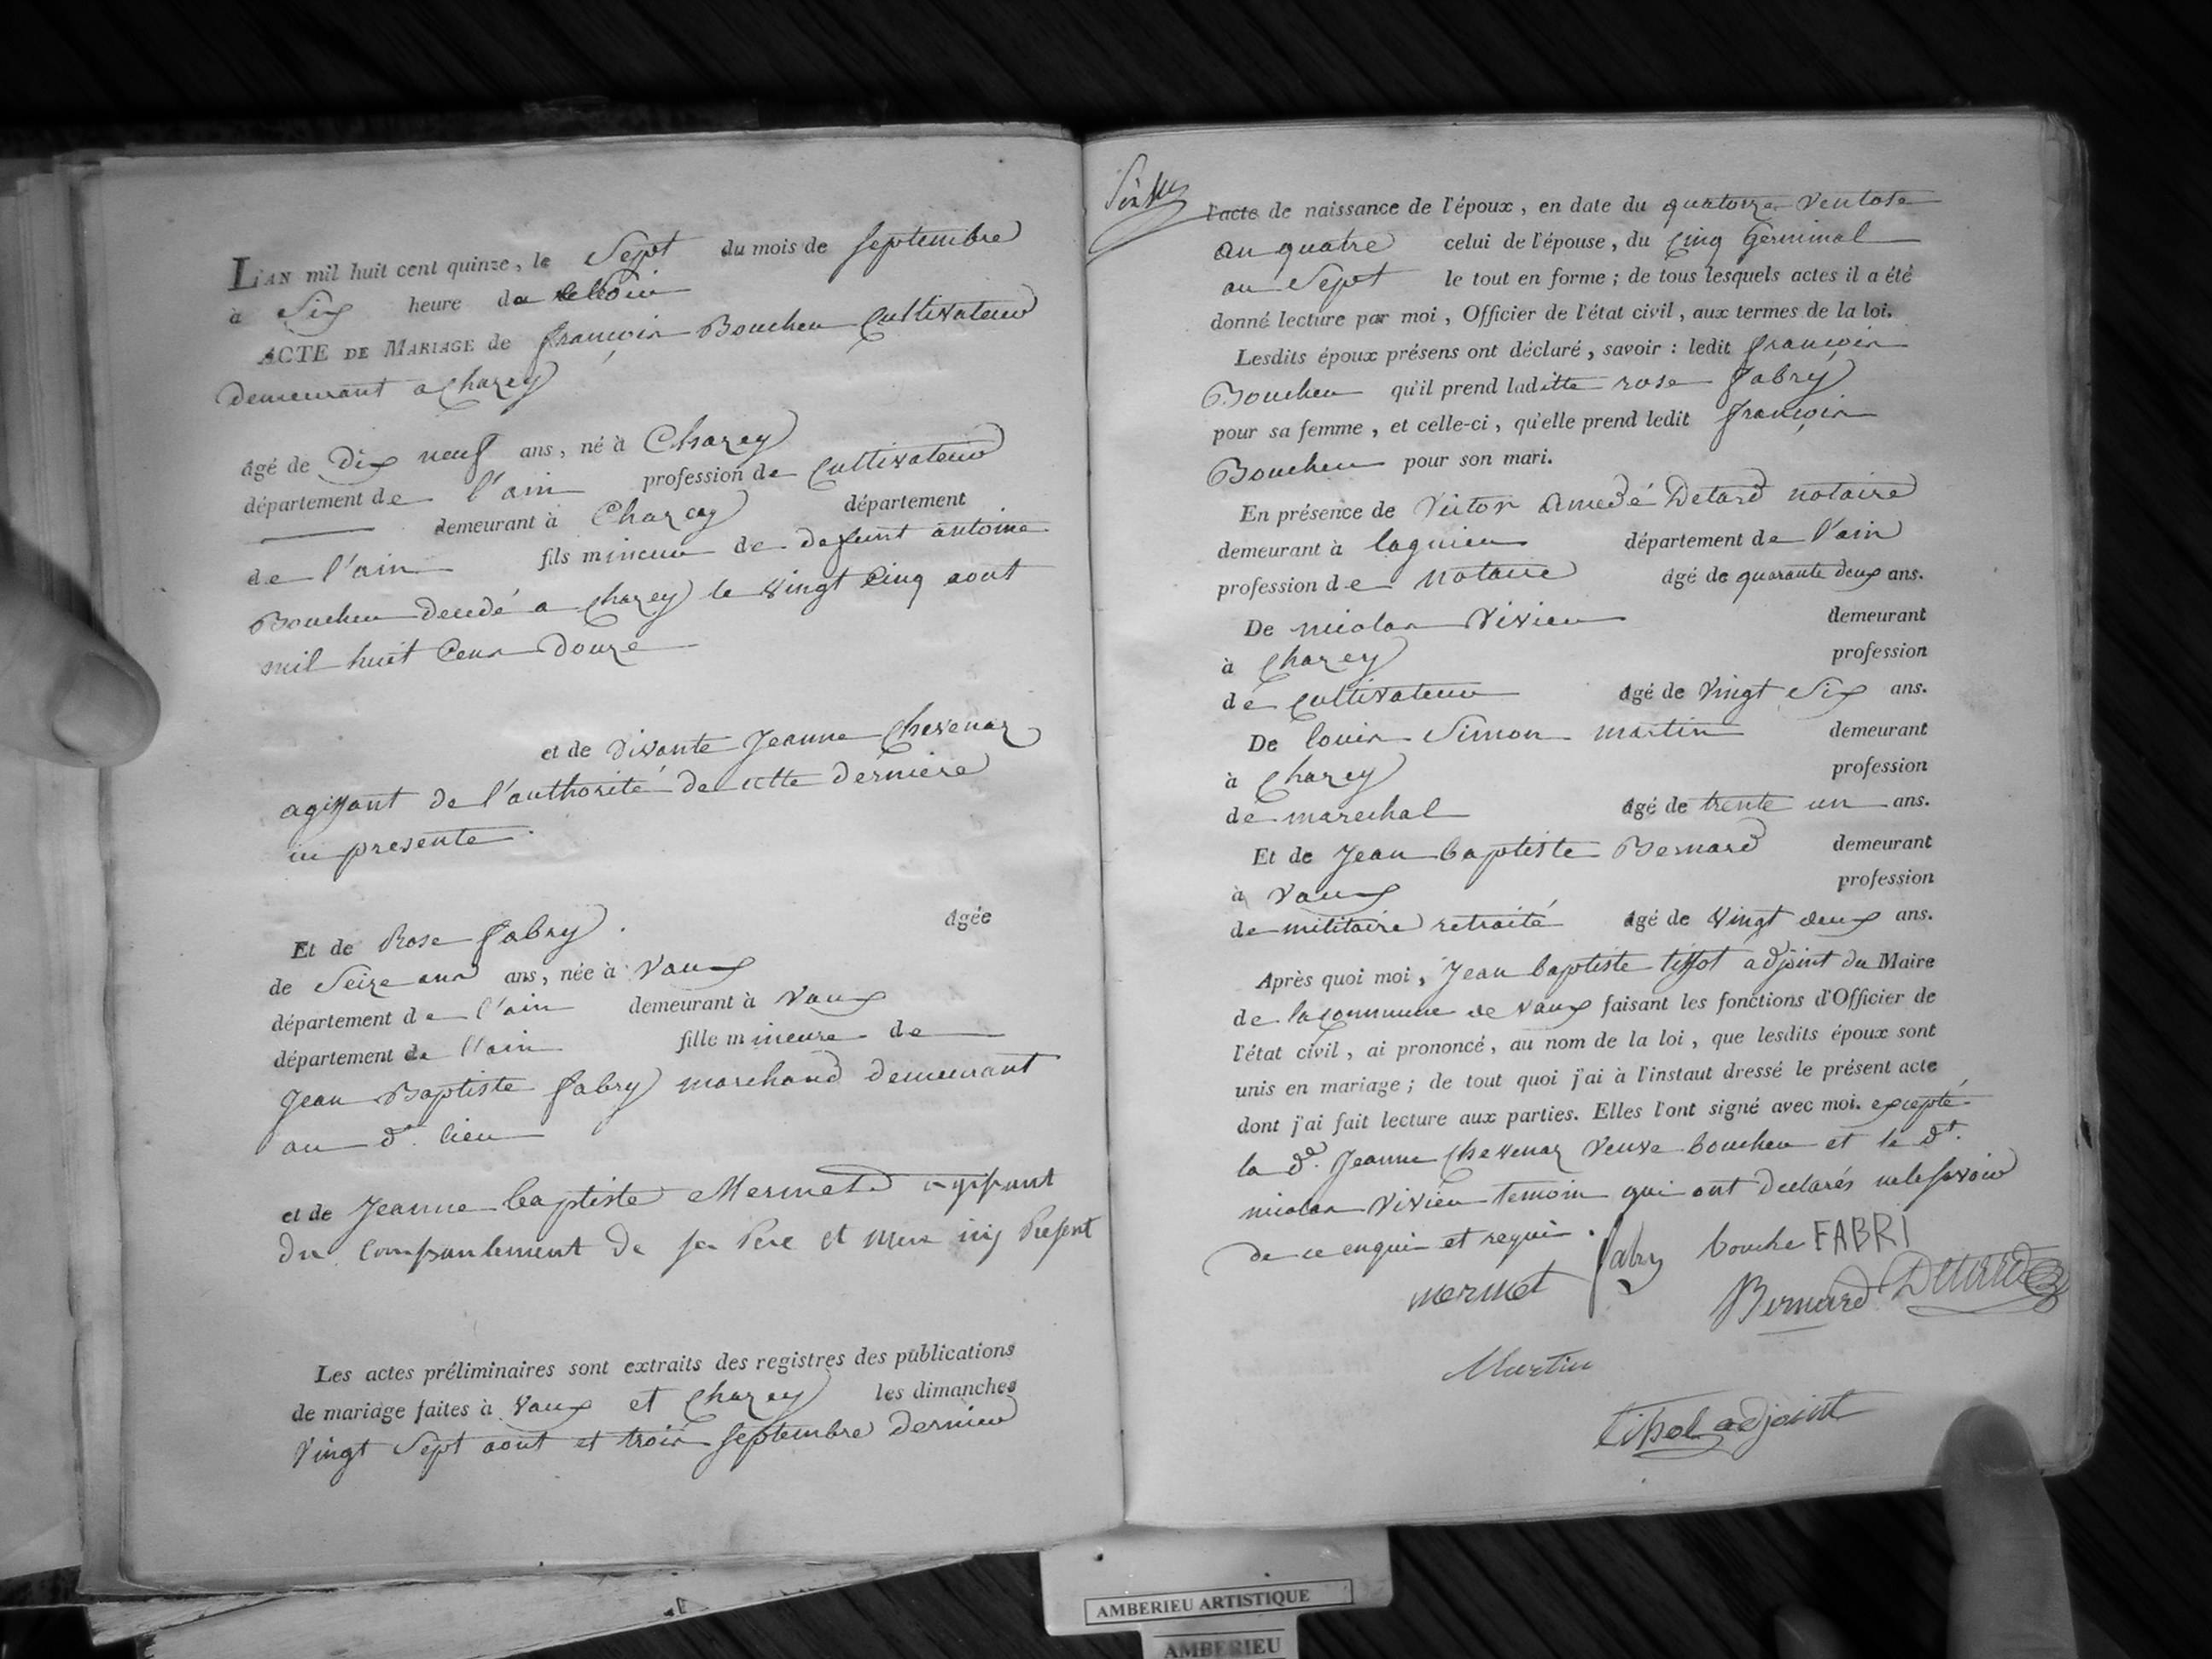 L'AN mil huit cent quinze, le Sept du mois de septembre
à Six heure du soir
ACTE DE MARIAGE de françois Boucheu cultivateur
demeurant a Chazey
âgé de Dix neuf ans, né à Chazey
département de l'ain profession de cultivateur
demeurant à Chazey département
de l'ain fils mineur de defunt antoine
Boucheu decedé a chazey le vingt cinq aout
mil huit cens douze
et de vivante Jeanne Chevenaz
agissant de l'authorité de cette derniere
ici presente.
Et de Rose fabry. âgée
de Seize ans ans, née à Vaux
département de l'ain demeurant à Vaux
département de l'ain fille mineure de
Jean Baptiste fabry marchand demeurant
au dt. lieu
et de Jeanne baptiste Mermet agissant
du consentement de ses Pere et Mere icy Present
Les actes préliminaires sont extraits des registres des publications
de mariage faites à Vaux et Chazey les dimanches
Vingt Sept aout et trois septembre dernier
l'acte de naissance de l'époux, en date du quatorze Ventose
an quatre celui de l'épouse, du cinq Germinal
an Sept le tout en forme; de tous lesquels actes il a été
donné lecture par moi, Officier de l'état civil, aux termes de la loi.
Lesdits époux présens ont déclaré, savoir: ledit françois
Boucheu qu'il prend laditte rose fabry
pour sa femme, et celle-ci, qu'elle prend ledit françois
Boucheu pour son mari.
En présence de Victor Amedé Detard notaire
demeurant à lagnieu département de l'ain
profession de Notaire âgé de quarante deux ans.
De nicolas Vivien demeurant
à Chazey profession
de cultivateur âgé de Vingt Six ans.
De louis Simon martin demeurant
à Chazey profession
de marechal âgé de trente un ans.
Et de Jean baptiste Bernard demeurant
à Vaux profession
de militaire retraité âgé de vingt deux ans.
Après quoi moi, Jean baptiste tissot adjoint du Maire
de la commune de Vaux faisant les fonctions d'Officier de
l'état civil, ai prononcé, au nom de la loi, que lesdits époux sont
unis en mariage; de tout quoi j'ai à l'instaut dressé le présent acte
dont j'ai fait lecture aux parties. Elles l'ont signé avec moi. excepté
la de. Jeanne Chevenaz Veuve boucheu et le dt.
nicolas Vivien temoin qui ont declarés ne le savoir
de ce enquis et requis.
fabry bouche FABRI
mermet Bernard Detard
Martin
tissot adjoint
AMBERIEU ARTISTIQUE
AMBERIEU